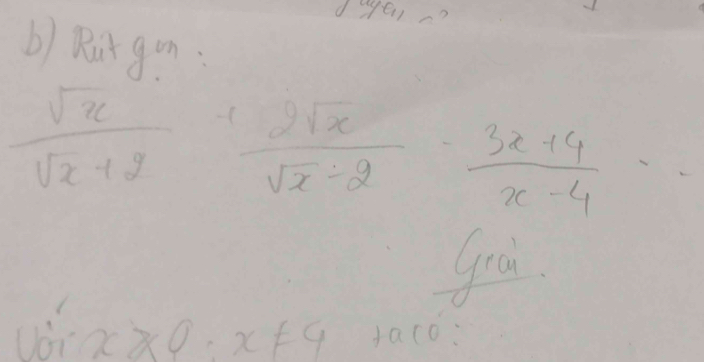 b) Rút gọn :
√x / √x + 2 + 2√x / √x - 2 - 3x + 4 / x - 4
Giải.
Với x ≥ 0 ; x ≠ 4 ta có :